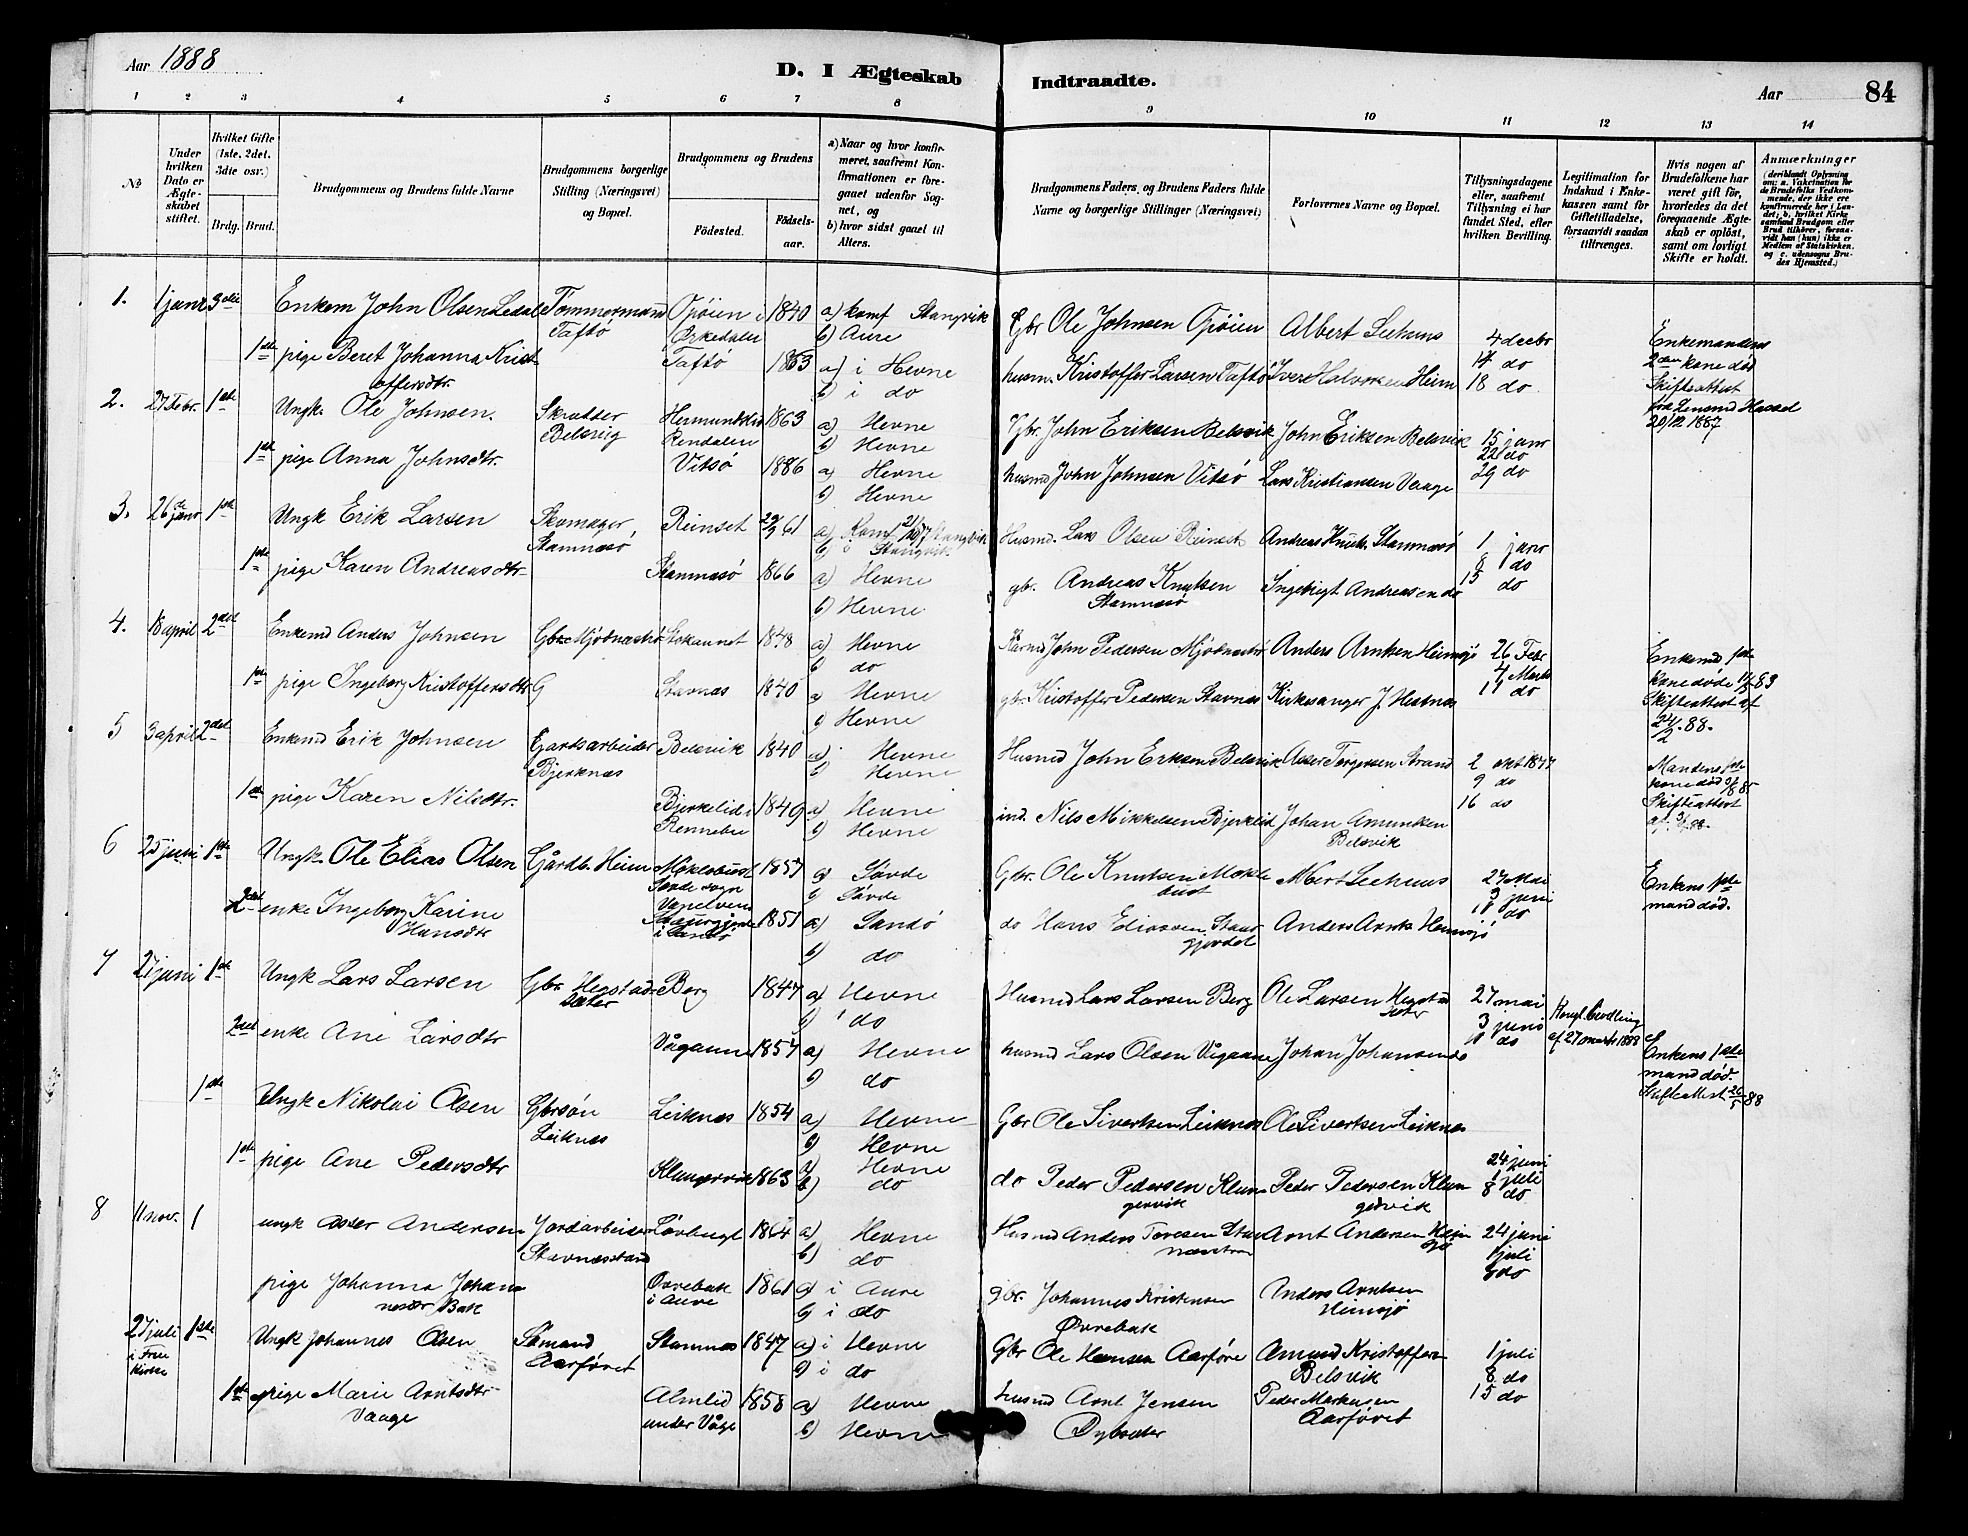 Aar 1888
D. I Ægteskab Indtraadte.
Aar 84
1 2 3 4 5 6 7 8 9 10 11 12 13 14
No
Under hvilken Dato er Ægteskabet stiftet.
Hvilket Gifte (1ste, 2det, 3die osv.)
Brdg. Brud.
Brudgommens og Brudens fulde Navne
Brudgommens borgerlige Stilling (Næringsvei) og Bopæl.
Brudgommens og Brudens
Fødested.
Fødselsaar.
a) Naar og hvor konfirmeret, saafremt Konfirmationen er foregaaet udenfor Sognet, og
b) hvor sidst gaaet til Alters.
Brudgommens Faders og Brudens Faders fulde Navne og borgerlige Stillinger (Næringsvei)
Forlovernes Navne og Bopæl.
Tillysningsdagene eller, saafremt Tillysning ei har fundet Sted, efter hvilken Bevilling.
Legitimation for Indskud i Enkekassen samt for Giftetilladelse, forsaavidt saadan tiltrænges.
Hvis nogen af Brudefolkene har været gift før, hvorledes da det foregaaende Ægteskab er opløst, samt om lovligt Skifte er holdt.
Anmærkninger
1. 1 janr 3die Enkem John Olsen Ledal Tømmermand Taftø Opøien i Orkedalen 1840 a) konf Stangvik b) Aure Gbr Ole Johnsen Opøien Albert Leehuus 4 decbr
Enkemandens 2den kone død Skifteattest fra Lensmd Hassel 20/12 1887
1ste pige Beret Johanna Kristoffersdtr. Taftø 1863 a) i Hevne b) i do husm. Kristoffer Larsen Taftø Iver Halvorsen Heim 14 do 18 do
2. 27 Febr. 1ste Ungk. Ole Johnsen. Skrædder Belsvig Rendalen 1863 a) Hevne b) Hevne Gbr. John Eriksen Belsvik John Eriksen Belsvik 15 janr 22 do
1ste pige Anna Johnsdtr. Vitsø 1886 a) Hevne b) Hevne husmd John Johnsen Vitsø Lars Kristiansen Vaage 29 do
3. 26de janr 1ste Ungk Erik Larsen Skomager Stamnæsø Reinset 61 a) Konf Stangvik b) i Stangvik Husmd. Lars Olsen Reinset Andreas Knuts. Stamnæsø 1 janr 8 do
1ste pige Karen Andreasdtr Stamnæsø 1866 a) Hevne b) Hevne gbr. Andreas Knutsen Stamnæsø Ingebrigt Andreasen do 15 do
4. 18 april 2det Enkemd Anders Johnsen Gbr Mjødnæsbø 1848 a) Hevne b) do John Pedersen Mjødnæsbø Anders Arntsen Heimsjø 26 Febr 4 Marts
Enkemd 1ste kone døde 83 Skifteattest af 88.
1ste pige Ingeborg Kristoffersdtr Stavnæs 1840 a) Hevne b) Hevne gbr Kristoffer Pedersen Stavnæs Kirkesanger J. Hestnæs 11 do
5 3 april 2det Enkemd Erik Johnsen Gardsarbeider Bjerknæs Belsvik 1840 a) Hevne b) Hevne Husmd John Eriksen Belsvik Asser Torgersen Strand 2 okt 1877 9 do
Mandens 1ste kone død Skifteattest af
1ste pige Karen Nilsdtr. Bjerkelid i Rennebu 1849 a) Hevne b) Hevne ind. Nils Mikkelsen Bjerkelid Johan Amundsen Belsvik 16 do
6 25 juni 1ste Ungk. Ole Elias Olsen Gårdb. Heim Møklebust Søvde sogn Vanelven 1857 a) Søvde b) Søvde Gbr. Ole Knutsen Møklebust Albert Leehuus 27 Mai 3 juni
Enkens 1ste mand død.
2det enke Ingeborg Karine Hansdtr i Sandø 1851 a) Sandø b) do do Hans Eliassen Staurgjerdet Anders Arnts Heimsjø 11 do
7 27 juni 1ste Ungk Lars Larsen Gbr Hegstadsæter Berg 1847 a) Hevne b) do Husmd Lars Larsen Berg Ole Larsen Hegstadsæter 27 mai 3 juni
Kongl. Bevilling af 27 marts 1888
2det enke Ane Larsdtr Våganne 1857 a) Hevne b) do husmd Lars Olsen Vågaane Johan Johansen do 10 do
Enkens 1ste mand død. Skifteattest 88
1ste Ungk Nikolai Olsen Gbrsøn Leiknæs Leiknæs 1854 a) Hevne b) Hevne Gbr Ole Sivertsen Leiknæs Ole Sivertsen Leiknæs
1ste pige Ane Pedersdtr Klungervik 1863 a) Hevne b) do do Peder Pedersen Klungervik Peder Pedersen Klungervik 24 juni 1 juli 8 do
8 11 nov. 1 ungk Asser Andersen Jordarbeider Stavnæsstrand Lovbugt 1864 a) Hevne b) do Husmd Anders Toresen Stavnæsstran Arnt Andersen 24 juni 1 juli
pige Johanna Johannesdr Bak Øvrebak i Aure 1861 a) i Aure b) i do gbr. Johannes Kristensen Øvrebak Anders Arntsen Heimsjø 8 do
27 juli i Frei Kirke 1ste Ungk Johannes Olsen Sømand Aarføret Stamnæs 1847 a) i Hevne b) i do Gbr Ole Hansen Aarføre Amund Kristoffers Belsvik 1 juli 8 do
1ste pige Marie Arntsdtr Vaage Almlid under Våge 1858 a) Hevne b) Hevne husmd Arnt Jensen Peder Markussen Aarføret 15 do